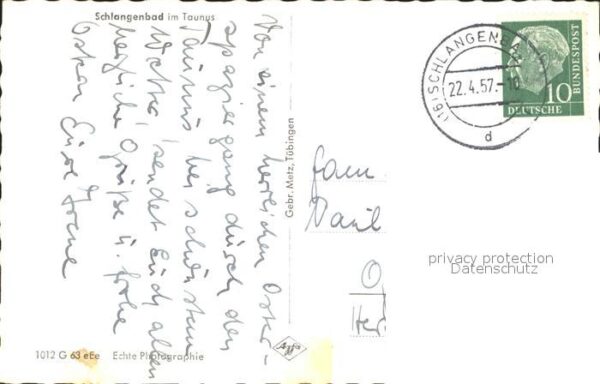 Schlangenbad im Taunus
Von einem herrlichen Oster-
spaziergang durch den
Taunus bei schönstem
Wetter, sendet Euch allen
herzliche Grüße u. frohe
Ostern Eure Irene
1012 G 63 eEe Echte Photographie
Gebr. Metz, Tübingen
Agfa
(16) SCHLANGENBA
22.4.57.-
d
10
DEUTSCHE
BUNDESPOST
Fam.
privacy protection
Datenschutz